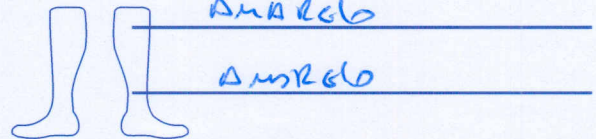 AMARELO
AMARELO